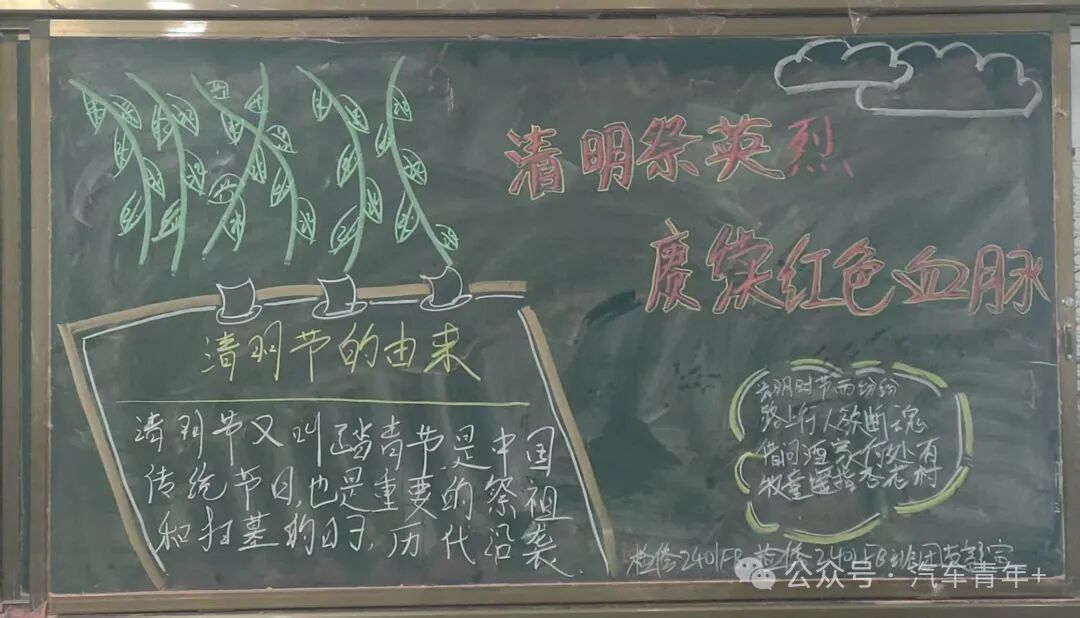 清明祭英烈
赓续红色血脉
清明节的由来
清明节又叫踏青节,是中国
传统节日,也是重要的祭祖
和扫墓的日子,历代沿袭.
清明时节雨纷纷
路上行人欲断魂
借问酒家何处有
牧童遥指杏花村
检修2401FB 检修2401FB班团支部宣
公众号 · 汽车青年+